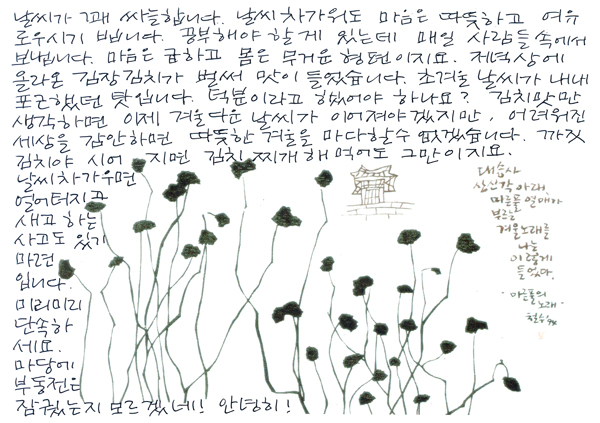 날씨가 꽤 싸늘합니다. 날씨 차가워도 마음은 따뜻하고 여유
로우시기 빕니다. 공부해야 할 게 있는데 매일 사람들 속에서
보냅니다. 마음은 급하고 몸은 무거운 형편이지요. 저녁상에
올라온 김장김치가 벌써 맛이 들었습니다. 초겨울 날씨가 내내
포근했던 탓입니다. 덕분이라고 했어야 하나요? 김치맛만
생각하면 이제 겨울다운 날씨가 이어져야겠지만, 어려워진
세상을 감안하면 따뜻한 겨울을 마다할 수 없겠습니다. 까짓
김치야 시어 지면 김치찌개 해 먹어도 그만이지요.
날씨 차가우면
얼어터지고
새고 하는
사고도 있기
마련
입니다.
미리미리
단속하
세요.
마당에
부동전은
잠궜는지 모르겠네! 안녕히!
대승사
삼선각 아래,
마른풀 열매가
부르는
겨울노래를
나는
이렇게
들었다.
·마른풀의
노래·
철수